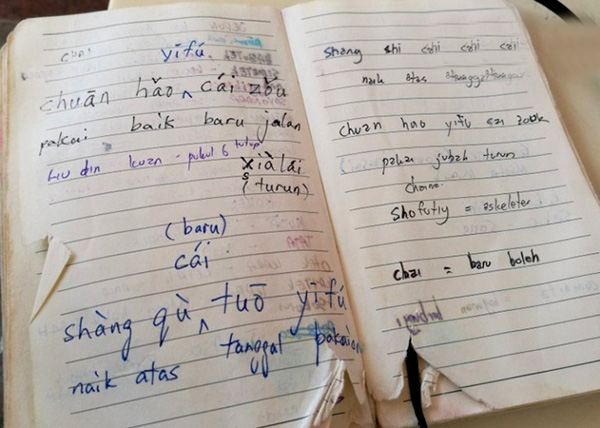 cai
yīfú.
chuān hǎo cái zǒu
pakai baik baru jalan
Liu din kuan - pukul 6 tutup
xiàlái
(turun)
(baru)
cái
shàng qù tuō yīfú
naik atas tanggal pakaian
Shang
naik atas
chuan hao yifu cai zouk
pakai jubah turun
Shofutiy = eskeleter
chai = baru boleh